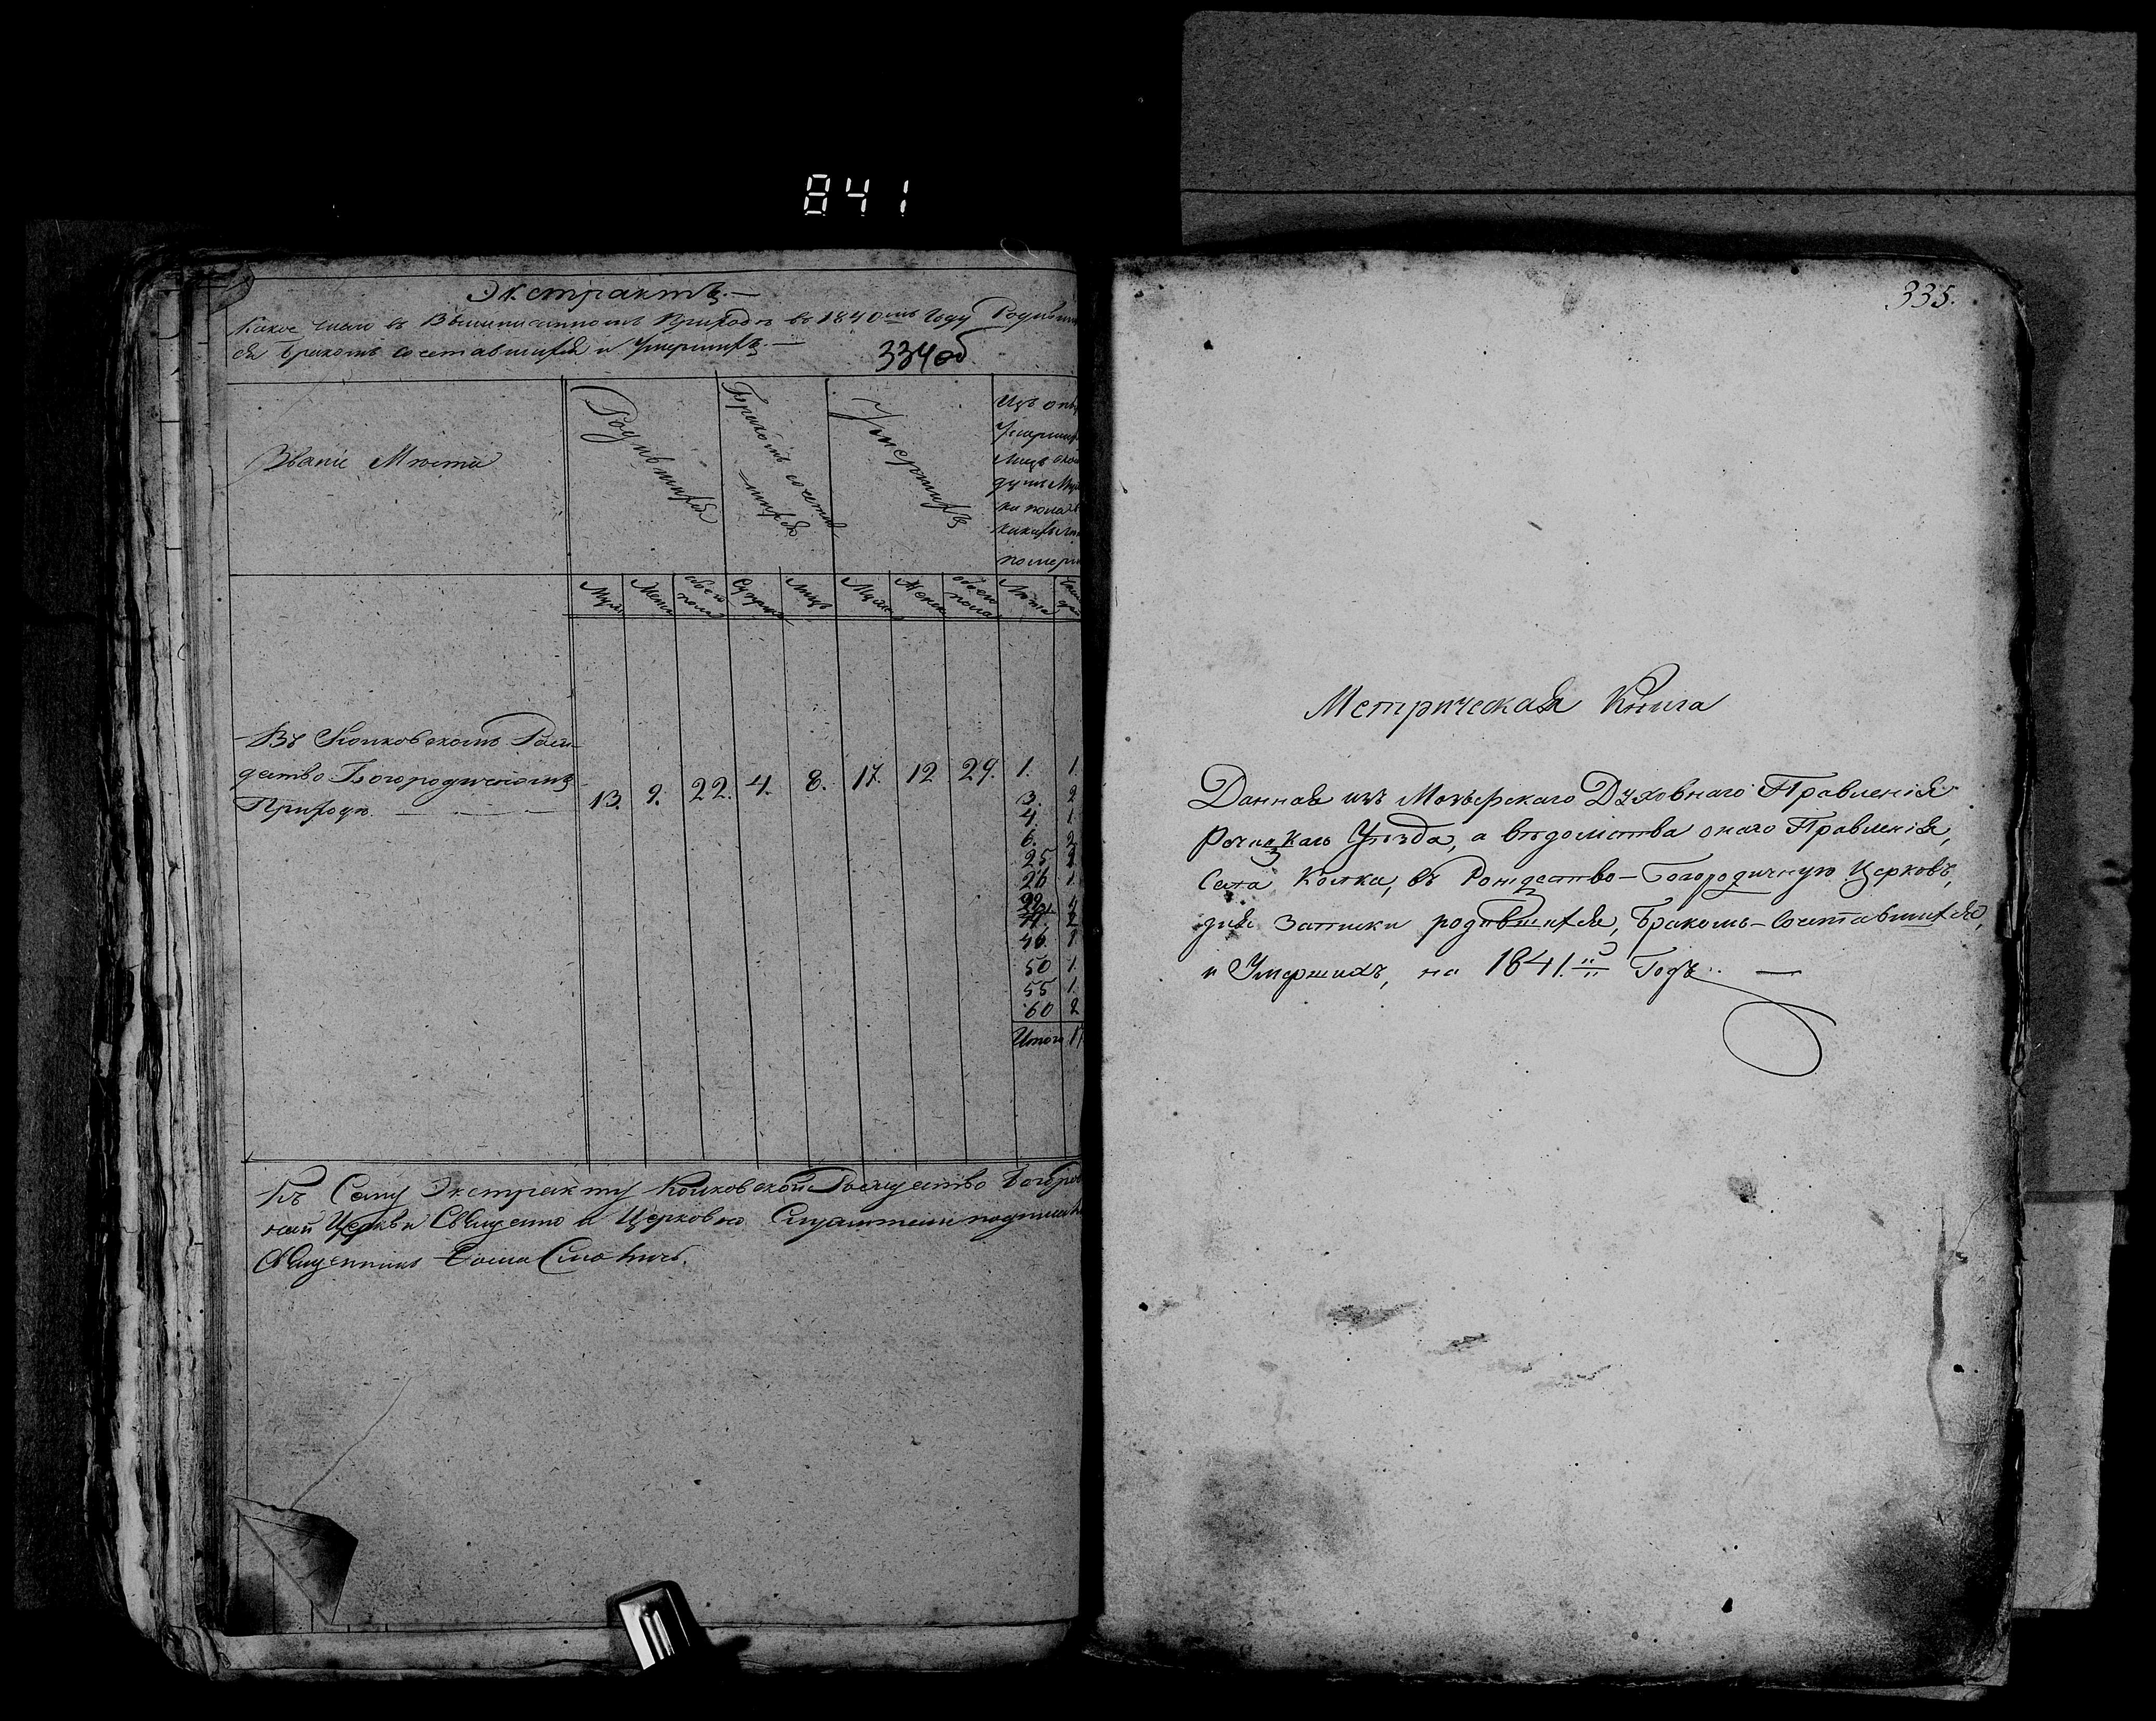 841
Экстрактъ. —
Какое число въ Вышеписанномъ Приходѣ въ 1840мъ Году Родивших
ся Бракомъ сочетавшихся и Умершихъ. —
334об
Званіе Мѣста
Родившихся
Бракомъ сочетав
шихся
Умершихъ
Изъ
Умерши
Лицъ
душъ Му
ка пола
какихъ
померл
Муж
Женс
обоего пола
Супруж
Лицъ
Мужс
Женск
обоего пола
Лѣта
Въ Колковскомъ Рож
дество Богородичномъ
Приходѣ. — — —
13. 9. 22. 4. 8. 17. 12 29. 1. 1.
3. 2
4. 1.
6. 2
25
26 1.
46. 1.
50 1.
55 1.
60 2
Итого 17
Къ Сему Экстракту Колковской Рождество Богоро
ной Церкви Священно и Церковно Служители подписа
Священникъ Фома
335.
Метрическая Книга
Данная изъ Мозырскаго Духовнаго Правленія
Рѣчицкаго Уѣзда, а вѣдомства онаго Правленія,
Села Колка, въ Рождество-Богородичную Церковь,
для записки родившихся, Бракомъ-Сочетавшихся,
и Умершихъ, на 1841.й Годъ. —